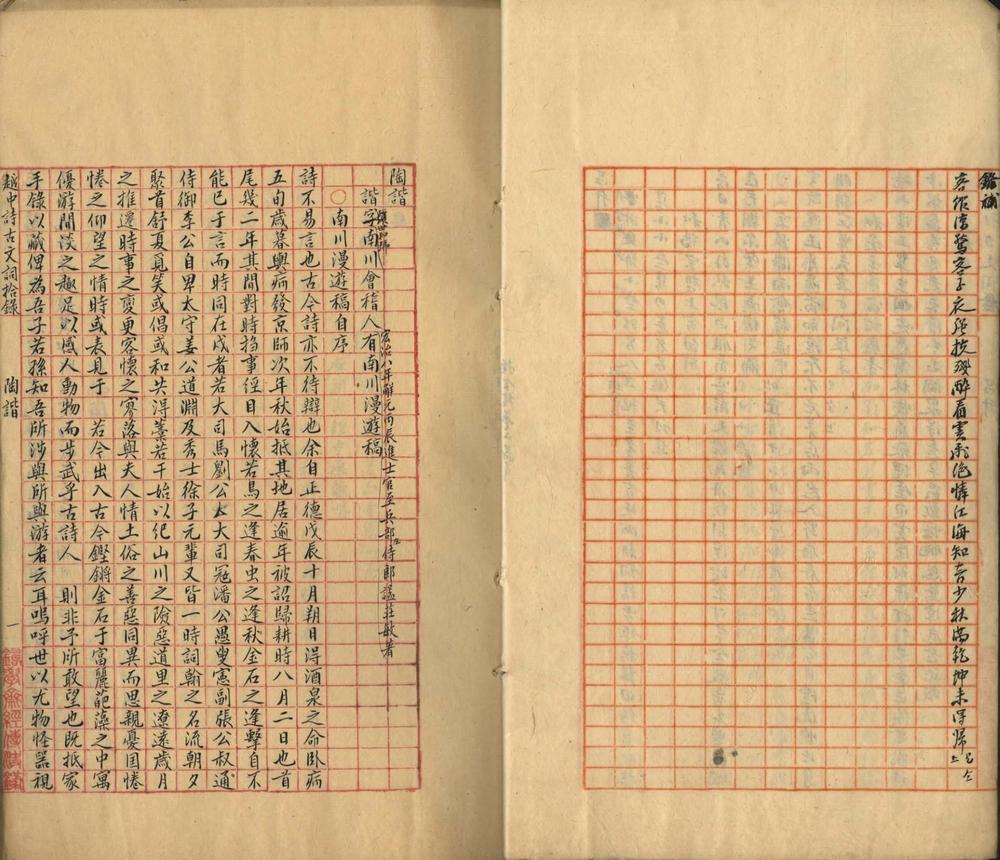 鑑補
客作浮鷺宰子衣强扶殘醉看雲飛絕憐江海知音少秋滿乾坤未得歸
陶諧
諧字南川會稽人有南川漫遊稿
宏治八年解元丙辰進士官至兵部左侍郎謚莊敏著
〇南川漫遊稿自序
詩不易言也古今詩亦不待辯也余自正德戊辰十月朔日得酒泉之命卧病
五旬歲暮輿病發京師次年秋始抵其地居逾年被詔歸耕時八月二日也首
尾幾二年其間對時撝事俓目入懷若鳥之逢春虫之逢秋金石之逢擊自不
能已于言而時同在戍者若大司馬劉公大大司冦潘公愚叟憲副張公叔通
侍御李公自卑太守姜公道淵及秀士徐子元輩又皆一時詞翰之名流朝夕
聚首舒憂覓笑或倡或和共得藁若干始以紀山川之險惡道里之遼遠歲月
之推遷時事之變更客懷之寥落與夫人情土俗之善惡同異而思親憂国惓
惓之仰望之情時或表見于 若今出入古今鏗鏘金石于富麗葩藻之中寓
優游閒淡之趣足以感人動物而步武乎古詩人 則非予所敢望也既抵家
手錄以藏俾為吾子若孫知吾所涉與所與游者云耳嗚呼世以尤物怪噐視
越中詩古文詞拾錄 陶諧 一